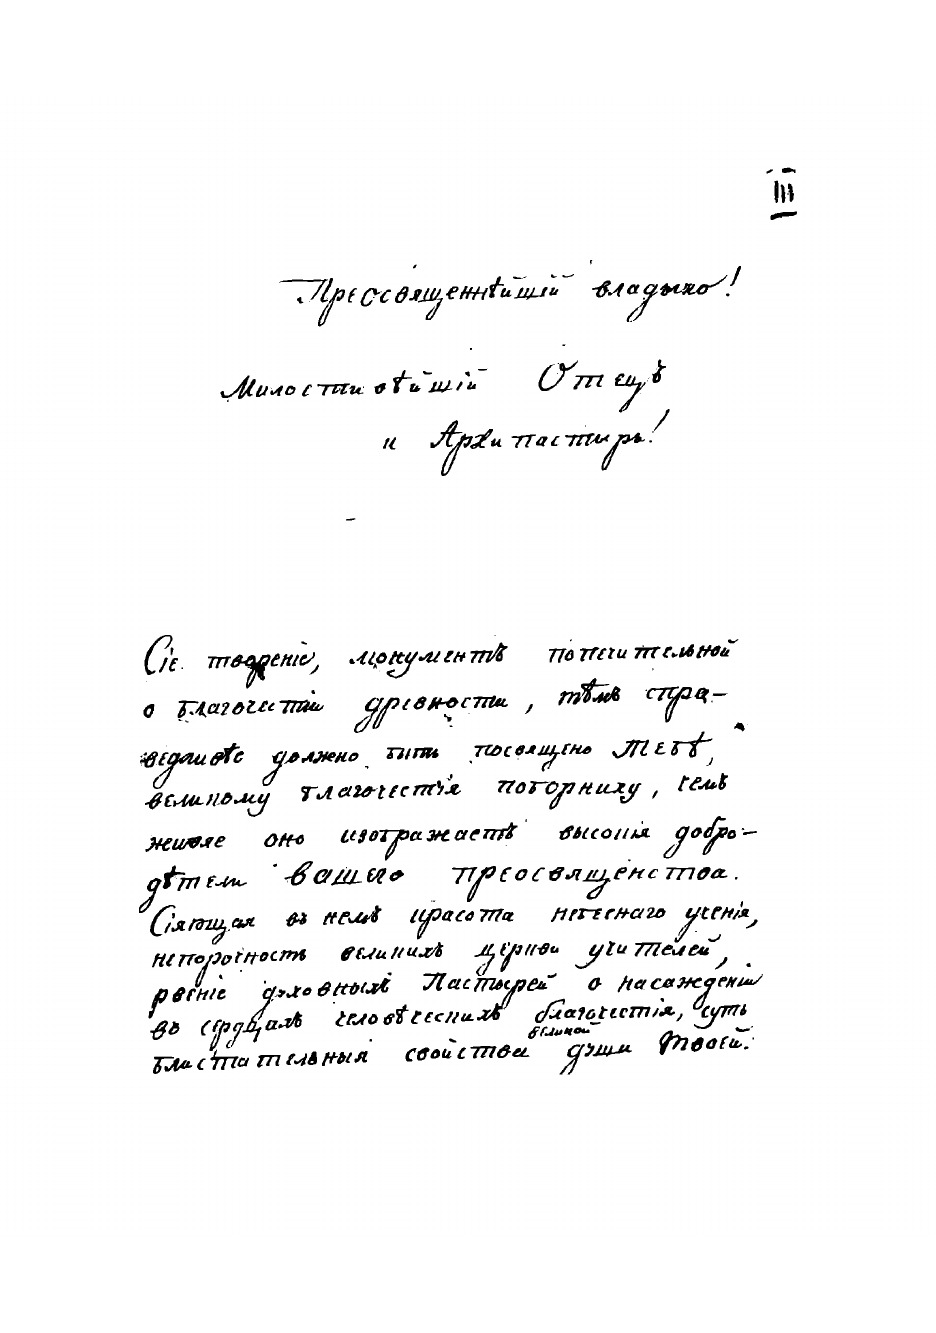 III
Преосвященнѣйшій владыко!
Милостивѣйшій Отецъ
и Архипастырь!
Сіе творение, монументъ попечительной
о благочестіи древности, тѣмъ спра-
ведливѣе должно быть посвящено Тебѣ,
великому благочестія поборнику, чемъ
живѣе оно изображаетъ высокія добро-
дѣтели вашего преосвященства.
Сіяющая въ немъ красота небеснаго ученія,
непорочность великихъ церкви учителей,
рвеніе духовныхъ Пастырей о насажденіи
въ сердцахъ человѣческихъ благочестія, суть
блистательныя свойства великой души Твоей.